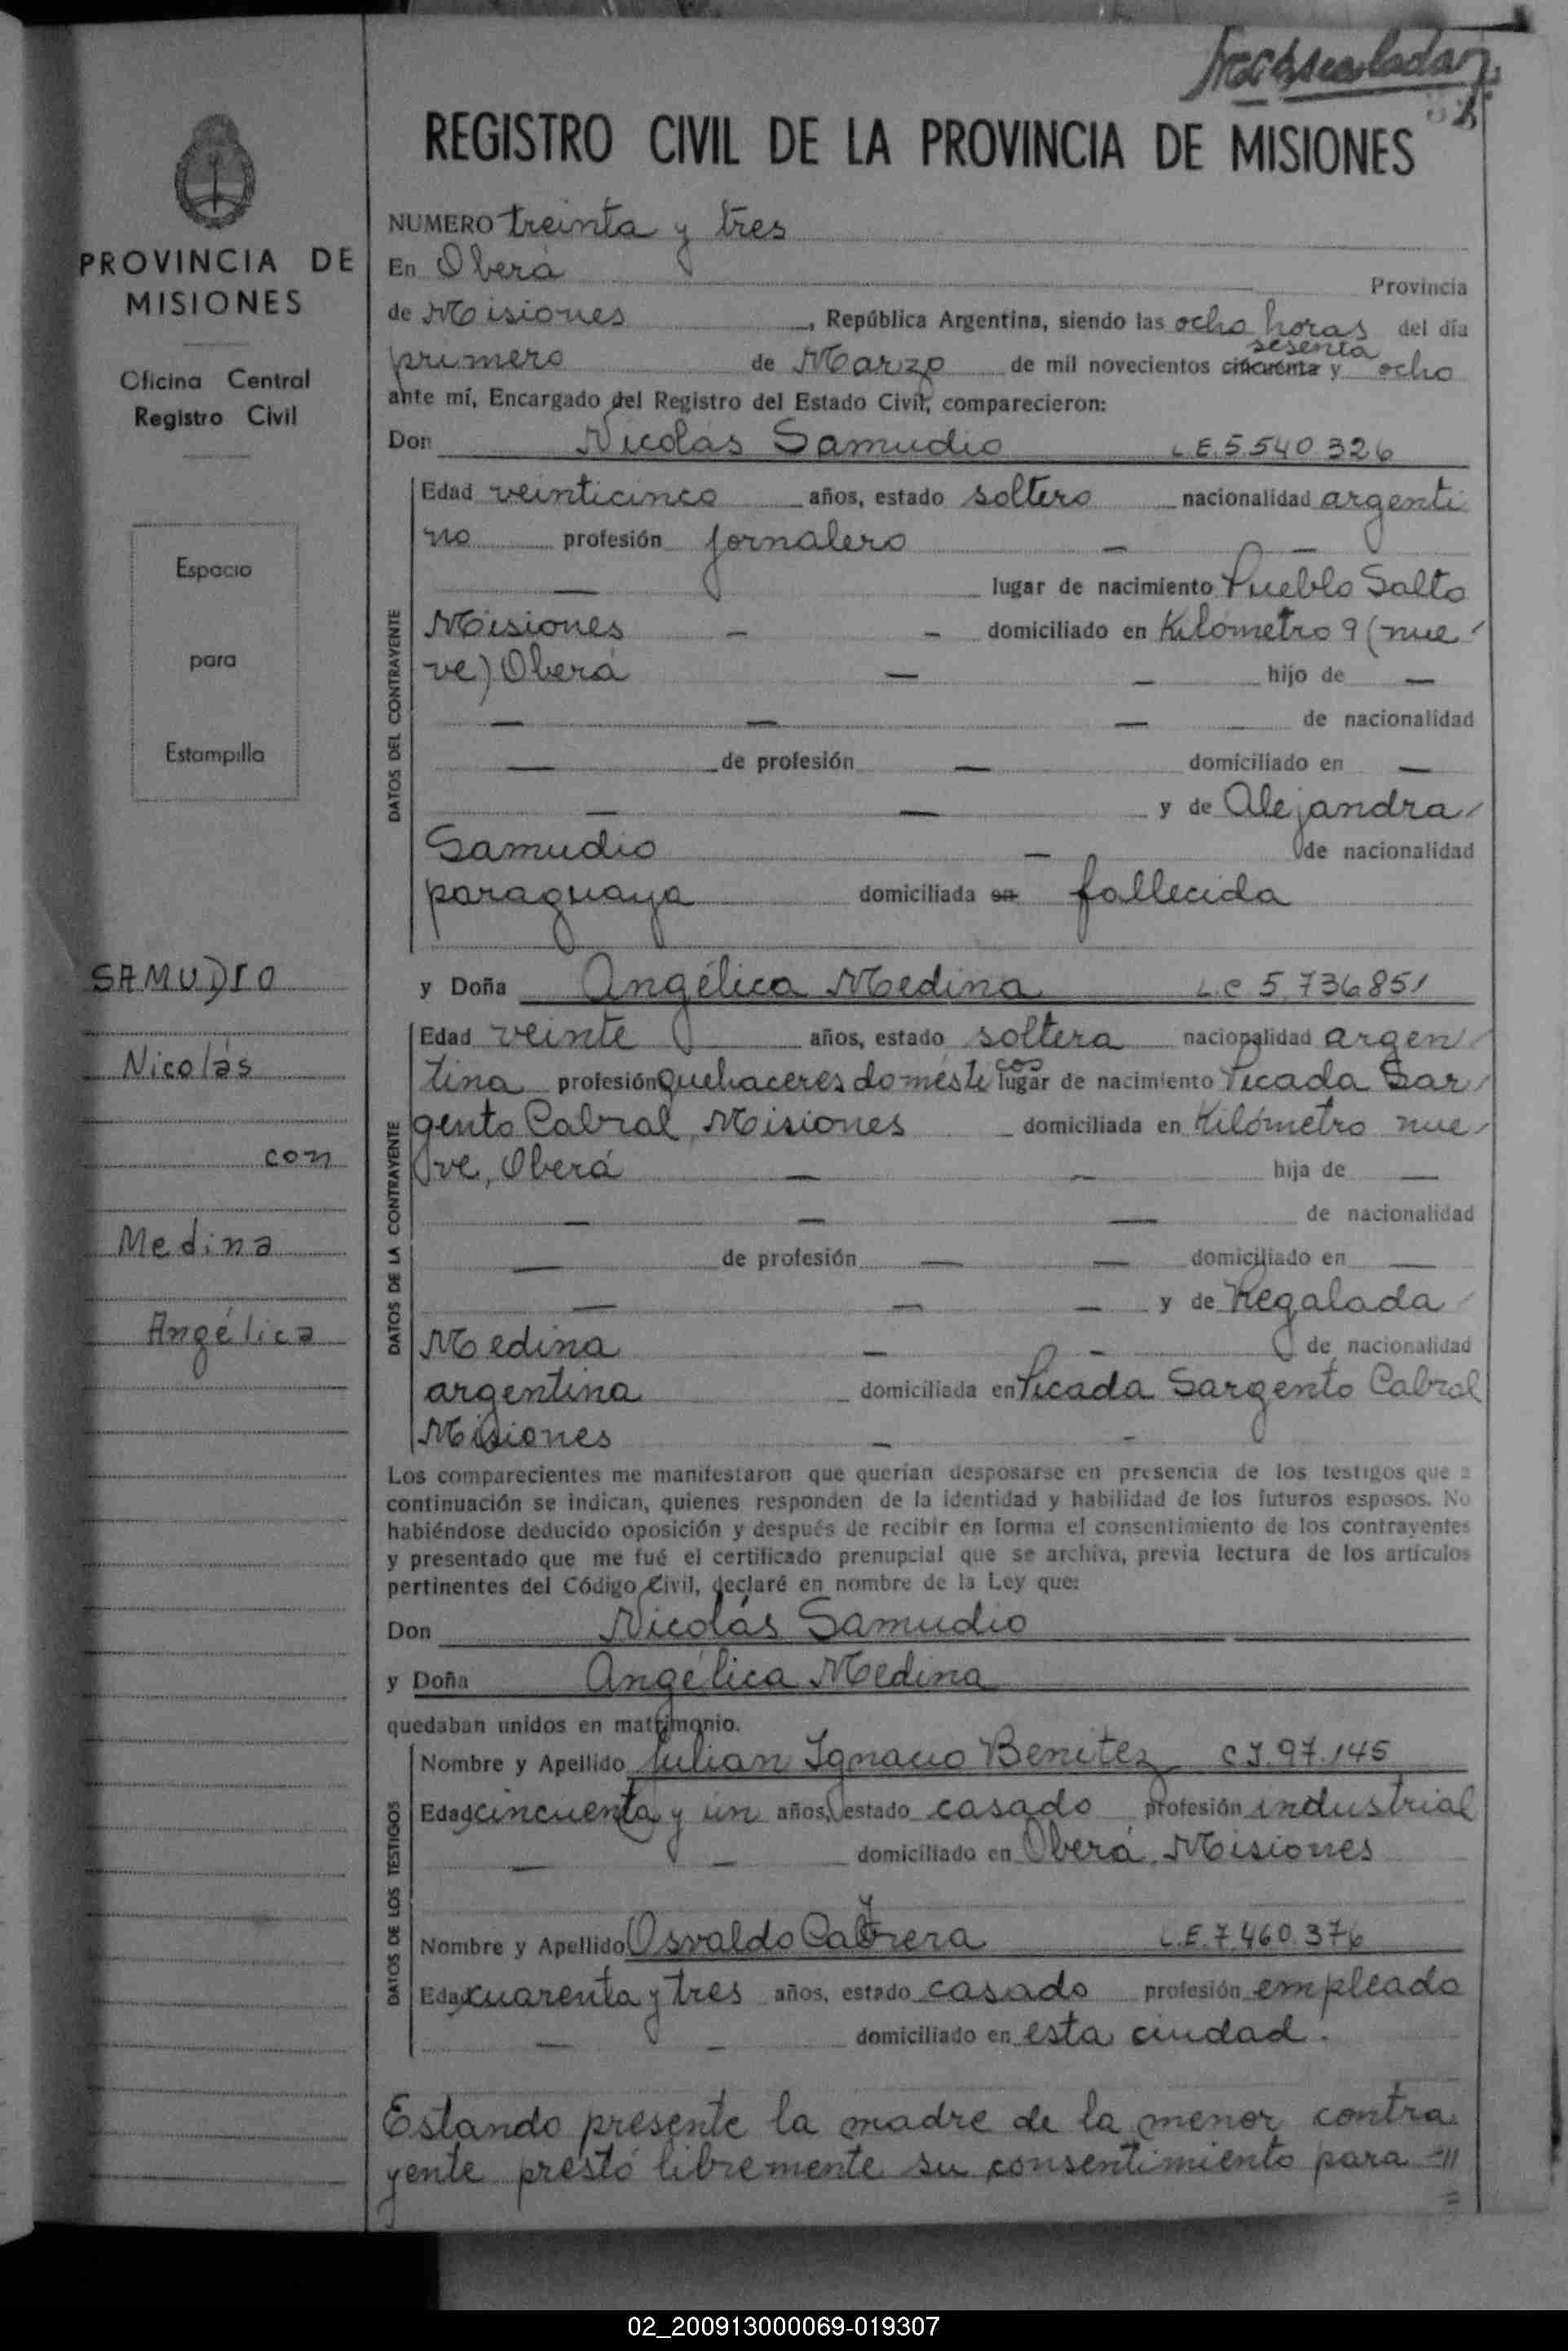 REGISTRO CIVIL DE LA PROVINCIA DE MISIONES
PROVINCIA DE
MISIONES
Oficina Central
Registro Civil
Espacio
para
Estampilla
SAMUDIO
Nicolás
con
Medina
Angélica
NUMERO treinta y tres
En Oberá Provincia
de Misiones, República Argentina, siendo las ocho horas del día
sesenta
primero de Marzo de mil novecientos cincuenta y ocho
ante mí, Encargado del Registro del Estado Civil, comparecieron:
Don Nicolás Samudio L.E. 5.540.326
DATOS DEL CONTRAYENTE
Edad veinticinco años, estado soltero nacionalidad argenti
no profesión jornalero —
— lugar de nacimiento Pueblo Salto
Misiones - - domiciliado en Kilómetro 9 (nue
ve) Oberá — — hijo de —
— — — de nacionalidad
— de profesión — domiciliado en —
— — y de Alejandra
Samudio — de nacionalidad
paraguaya domiciliada en fallecida
y Doña Angélica Medina L.C 5.736851
DATOS DE LA CONTRAYENTE
Edad veinte años, estado soltera nacionalidad argen
cos
tina profesión Quehaceres domésti lugar de nacimiento Picada Sar
gento Cabral, Misiones domiciliada en Kilómetro nue
ve, Oberá — — hija de —
— — — de nacionalidad
— de profesión — — domiciliado en —
— — — y de Regalada
Medina — - de nacionalidad
argentina domiciliada en Picada Sargento Cabral
Misiones - -
Los comparecientes me manifestaron que querían desposarse en presencia de los testigos que a
continuación se indican, quienes responden de la identidad y habilidad de los futuros esposos. No
habiéndose deducido oposición y después de recibir en forma el consentimiento de los contrayentes
y presentado que me fué el certificado prenupcial que se archiva, previa lectura de los artículos
pertinentes del Código Civil, declaré en nombre de la Ley que:
Don Nicolás Samudio
y Doña Angélica Medina
quedaban unidos en matrimonio.
DATOS DE LOS TESTIGOS
Nombre y Apellido Julian Ignacio Benitez C I. 97.145
Edad cincuenta y un años, estado casado profesión industrial
— — domiciliado en Oberá, Misiones
Nombre y Apellido Osvaldo Cabrera L.E. 7.460.376
Edad cuarenta y tres años, estado casado profesión empleado
— - domiciliado en esta ciudad.
Estando presente la madre de la menor contra
yente prestó libremente su consentimiento para =//
=
02_200913000069-019307